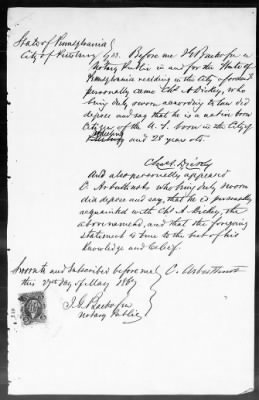 State of Pennsylvania }
City of Pittsburg } ss. Before me J G Backofen a
Notary Public in and for the State of
Pennsylvania residing in the City aforesaid
personally came Chs A Dickey, who
being duly sworn according to law did
depose and say that he is a native born
Citizen of the U. S. born in the City of
and 28 years old.
Chas A. Dickey
And also personally appeared
C. Arbuthnot who being duly sworn
did depose and say, that he is personally
acquainted with Chs A. Dickey, the
above named, and that the foregoing
statement is true to the best of his
knowledge and belief.
Sworn to and subscribed before me } C. Arbuthnot
this day of May 1867
J. G. Backofen
Notary Public